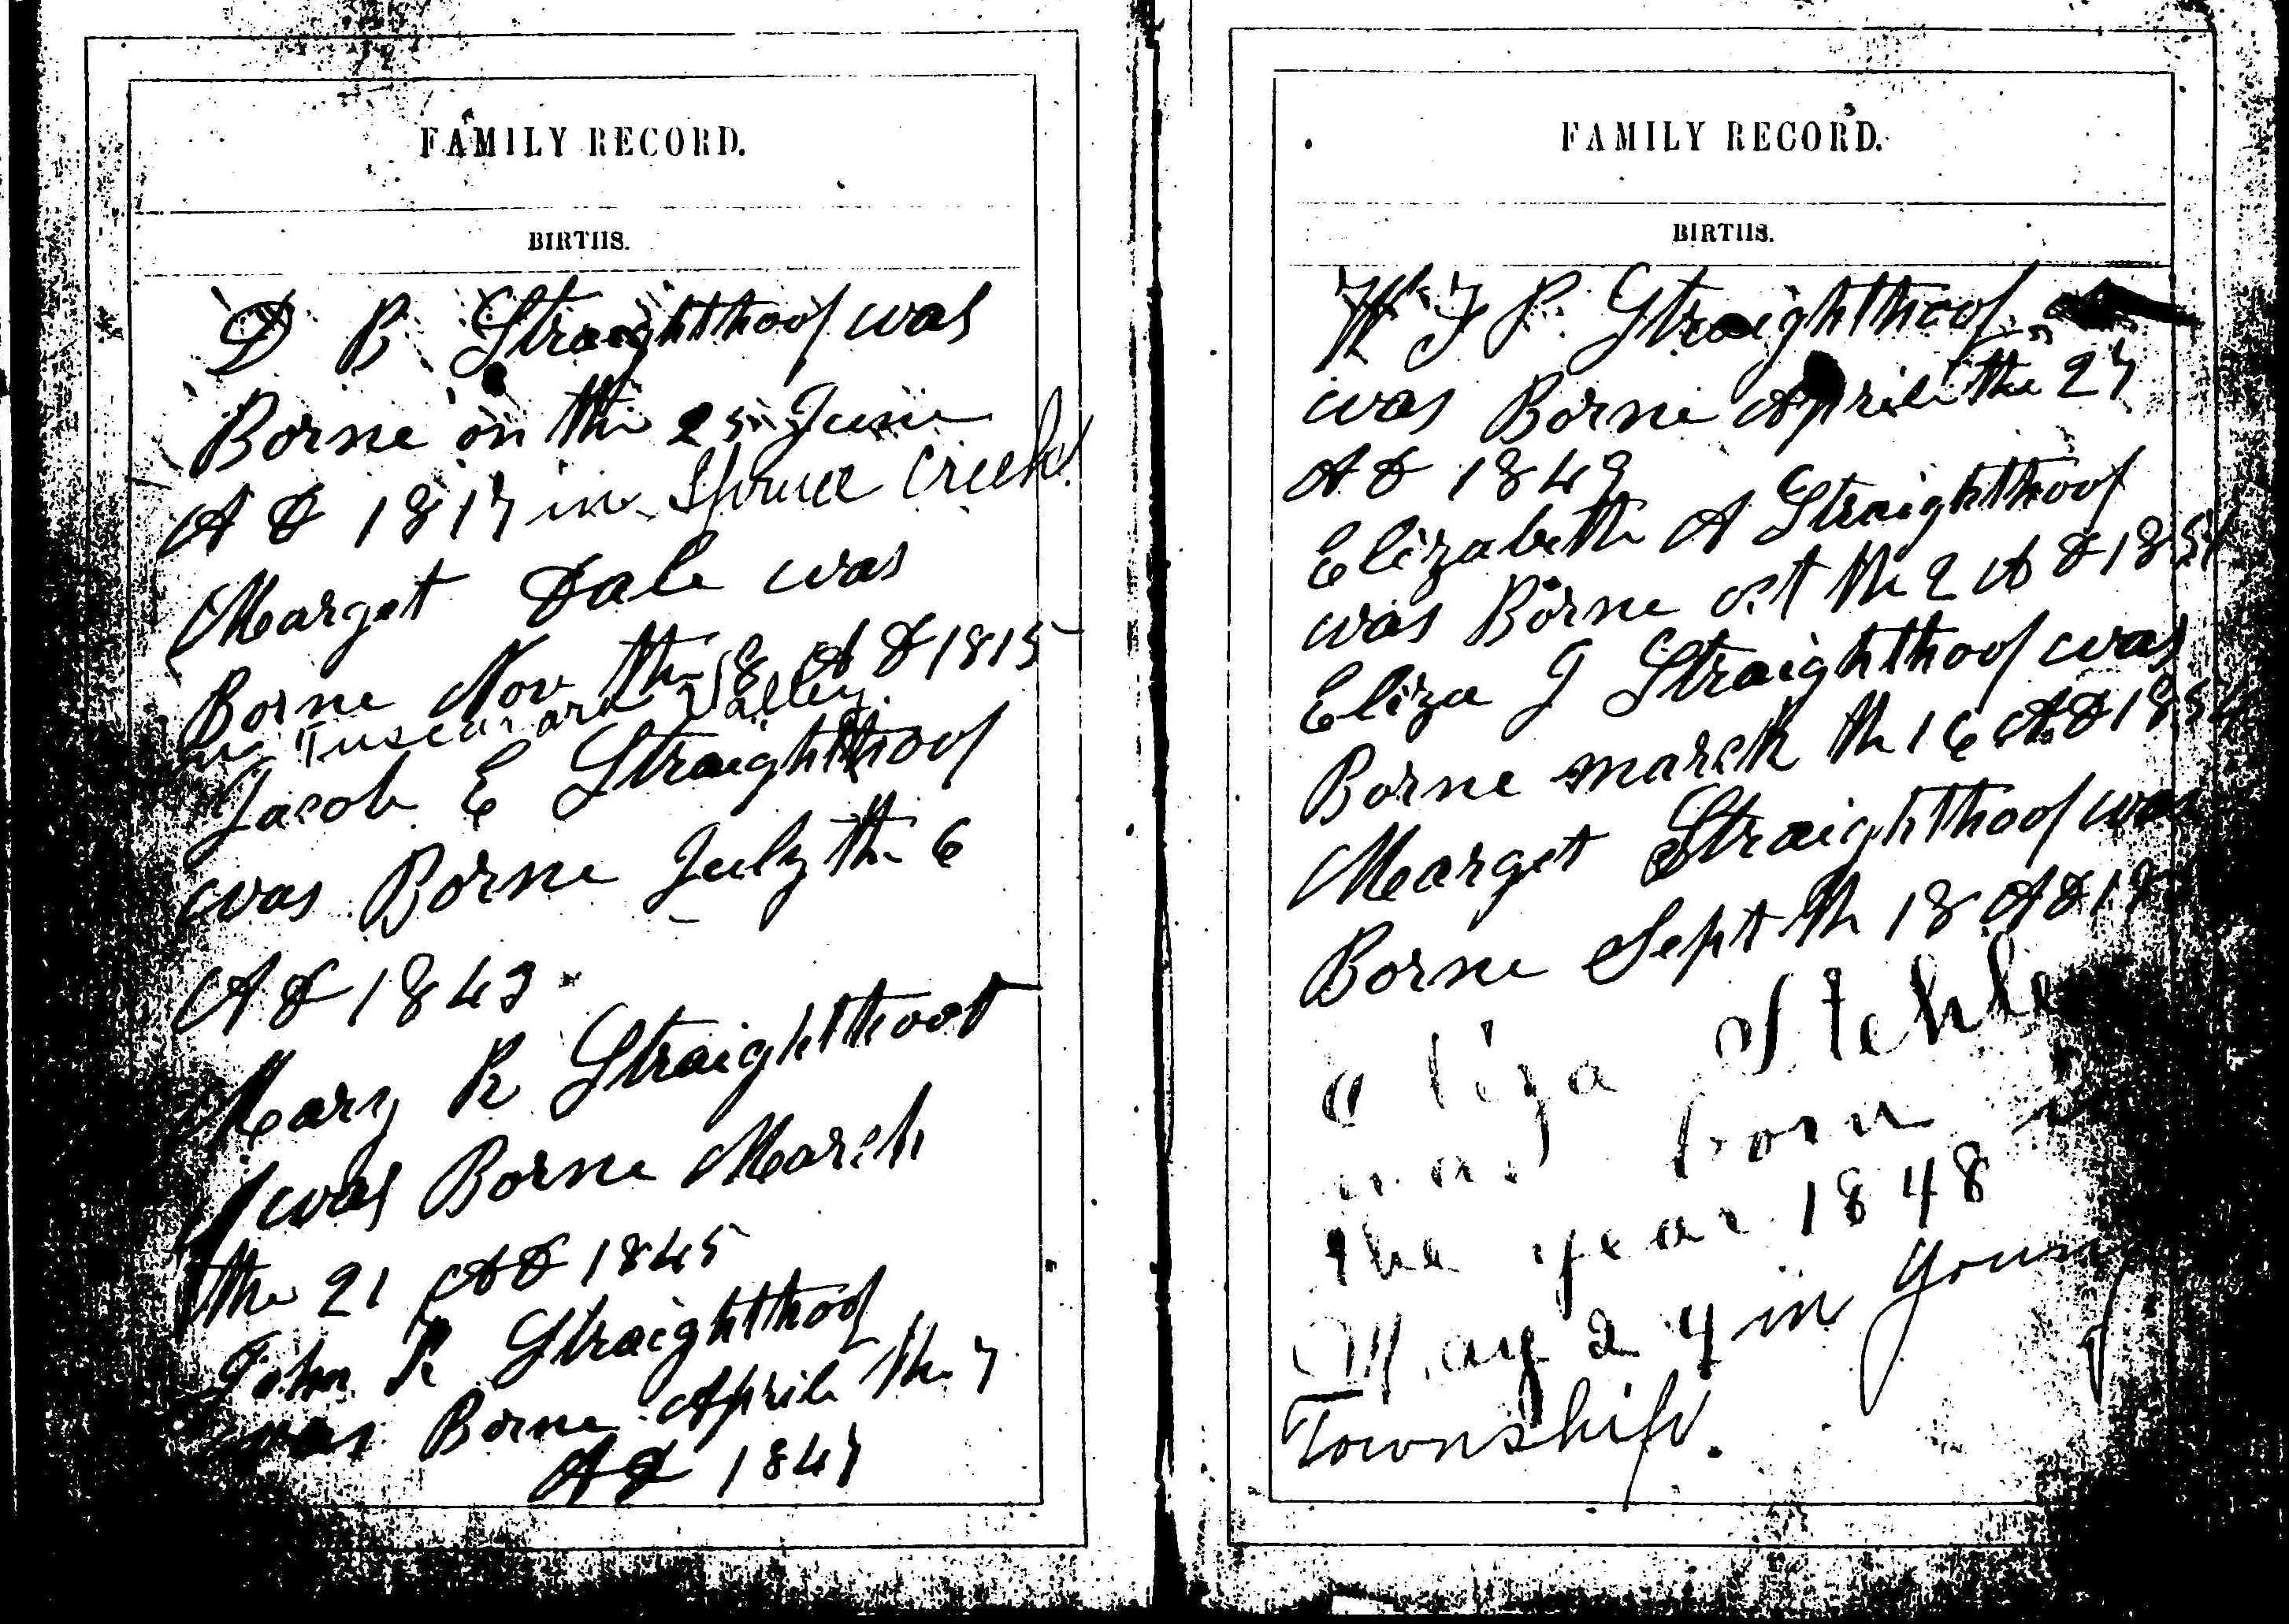 FAMILY RECORD.
BIRTHS.
D R Straighthoof was
Borne on the 25 June
A D 1817 in Spruce Creek.
Marget Dale was
Borne Nov the 18 A D 1815
in Tuscarara Valley.
Jacob E Straighthoof
was Borne July the 6
A D 1843
Mary R Straighthoof
was Borne March
the 21 A D 1845
John R Straighthoof
was Borne Aprile the 7
A D 1847
FAMILY RECORD.
BIRTHS.
Straighthoof
was Borne Aprile the 27
A D 1849
Elizabeth A Straighthoof
was Borne oct the 2 A D 1851
Eliza J Straighthoof was
Borne march the 16 A D 1854
Marget Straighthoof was
Borne Sept the 18 A D
Stehle
was born
the year 1848
May 24 in Young
Township.